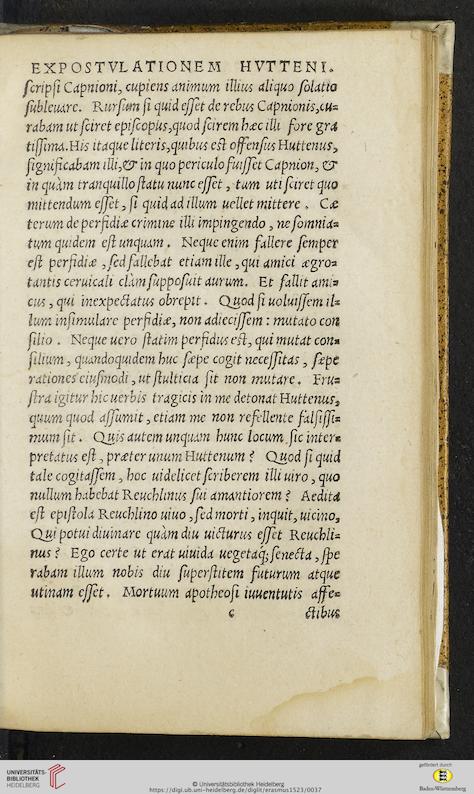 EXPOSTVLATIONEM HVTTENI.
ſcripſi Capnioni, cupiens animum illius aliquo ſolatio
ſubleuare. Rurſum ſi quid eſſet de rebus Capnionis, cu-
rabam ut ſciret epiſcopus, quod ſcirem hæc illi fore gra
tiſſima. His itaque literis, quibus eſt offenſus Huttenus,
ſignificabam illi, & in quo periculo fuiſſet Capnion, &
in quàm tranquillo ſtatu nunc eſſet, tum uti ſciret quo
mittendum eſſet, ſi quid ad illum uellet mittere. Cæ
terum de perfidiæ crimine illi impingendo, ne ſomnia-
tum quidem eſt unquam. Neque enim fallere ſemper
eſt perfidiæ, ſed fallebat etiam ille, qui amici ægro-
tantis ceruicali clàm ſuppoſuit aurum. Et fallit ami-
cus, qui inexpectatus obrepit. Quod ſi uoluiſſem il-
lum inſimulare perfidiæ, non adieciſſem: mutato con
ſilio. Neque uero ſtatim perfidus eſt, qui mutat con-
ſilium, quandoquidem huc ſæpe cogit neceſſitas, ſæpe
rationes eiuſmodi, ut ſtultitia ſit non mutare. Fru-
ſtra igitur hic uerbis tragicis in me detonat Huttenus,
quum quod aſſumit, etiam me non refellente falſiſſi-
mum ſit. Quis autem unquam hunc locum ſic inter-
pretatus eſt, præter unum Huttenum? Quod ſi quid
tale cogitaſſem, hoc uidelicet ſcriberem illi uiro, quo
nullum habebat Reuchlinus ſui amantiorem? Aedita
eſt epiſtola Reuchlino uiuo, ſed morti, inquit, uicino,
Qui potui diuinare quàm diu uicturus eſſet Reuchli-
nus? Ego certe ut erat uiuida uegetaq; ſenecta, ſpe
rabam illum nobis diu ſuperſtitem futurum atque
utinam eſſet. Mortuum apotheoſi iuuentutis affe-
c ctibus
UNIVERSITÄTS-
BIBLIOTHEK
HEIDELBERG
© Universitätsbibliothek Heidelberg
https://digi.ub.uni-heidelberg.de/diglit/erasmus1523/0037
gefördert durch
Baden-Württemberg